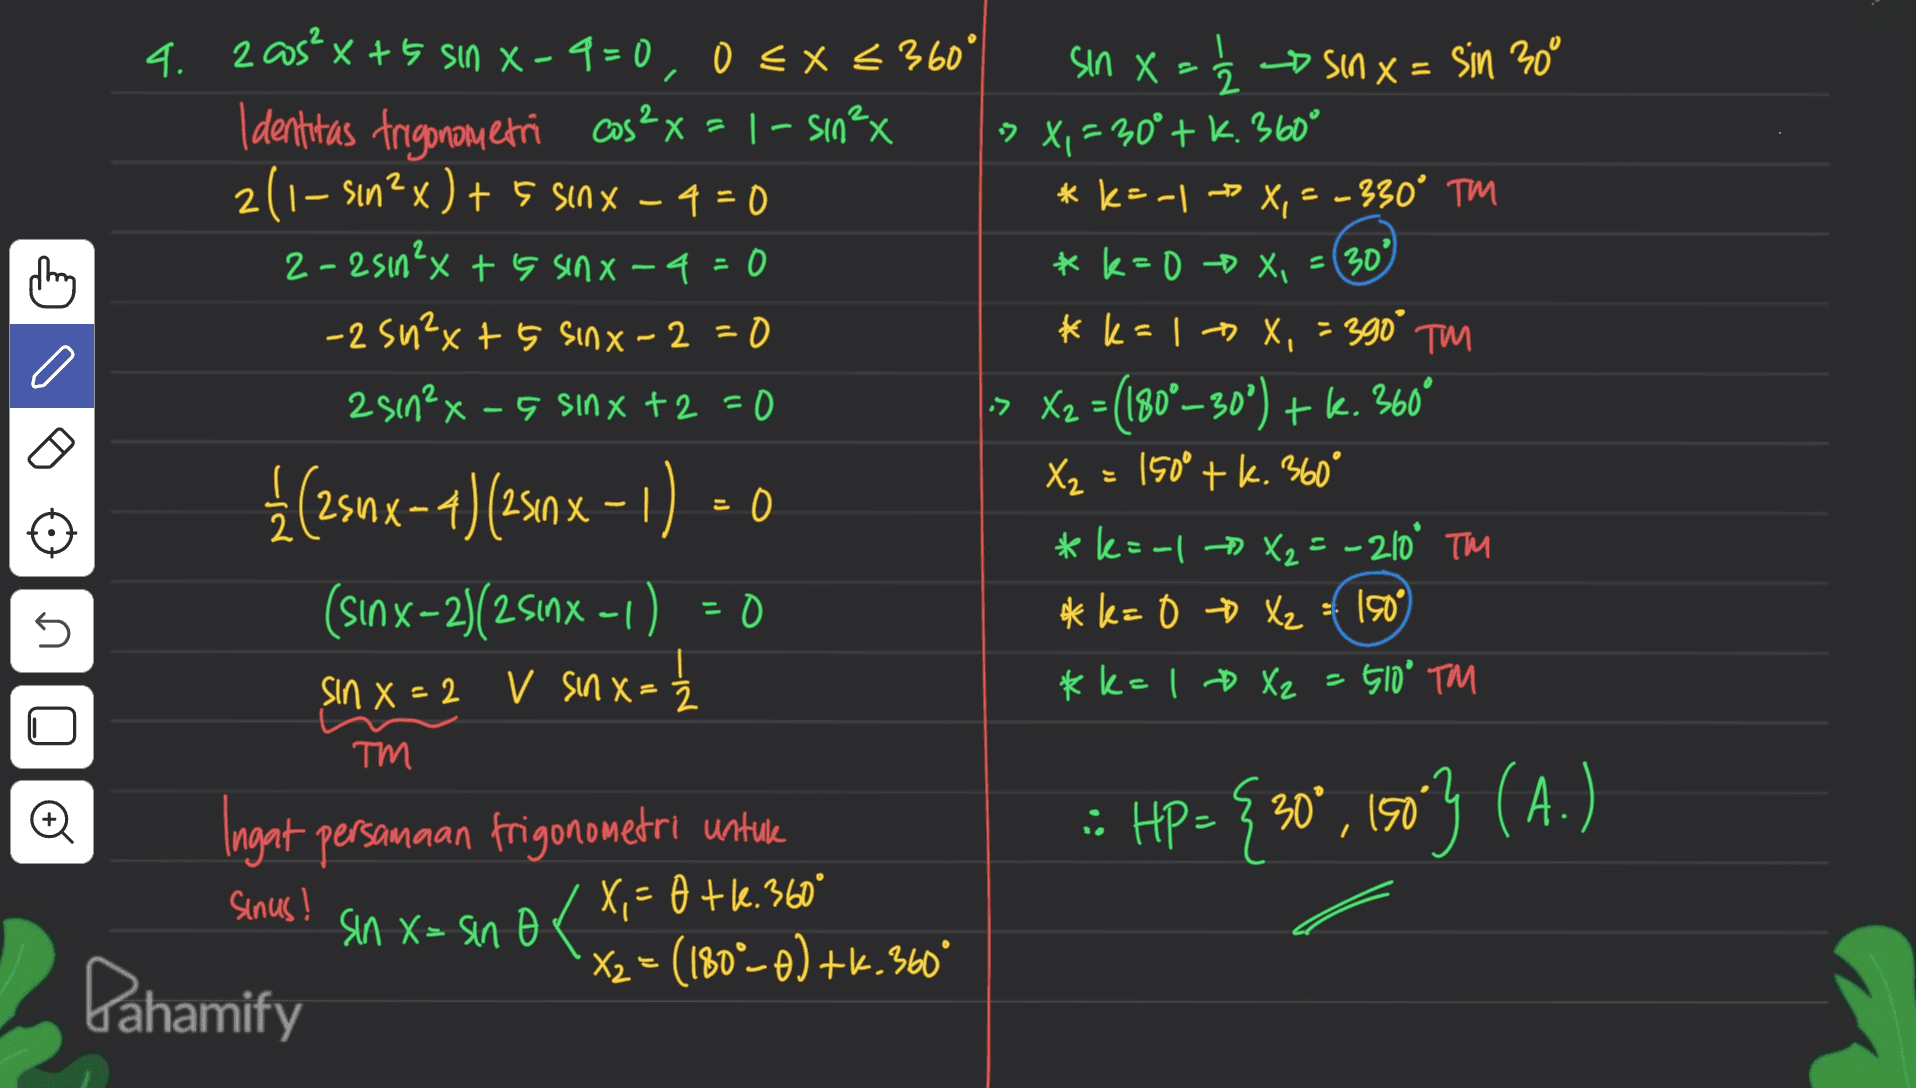 4. 2 cos² x + 5 sin x - 4 = 0, 0 ≤ x ≤ 360°
Identitas trigonometri cos² x = 1 - sin² x
2(1 - sin² x) + 5 sin x - 4 = 0
2 - 2 sin² x + 5 sin x - 4 = 0
-2 sin² x + 5 sin x - 2 = 0
2 sin² x - 5 sin x + 2 = 0
1/2 (2 sin x - 4)(2 sin x - 1) = 0
(sin x - 2)(2 sin x - 1) = 0
sin x = 2 V sin x = 1/2
TM
Ingat persamaan trigonometri untuk
sinus! sin x = sin θ < x₁ = θ + k. 360°
x₂ = (180° - θ) + k. 360°
sin x = 1/2 → sin x = sin 30°
·> x₁ = 30° + k. 360°
* k = -1 → x₁ = -330° TM
* k = 0 → x₁ = 30°
* k = 1 → x₁ = 390° TM
·> x₂ = (180° - 30°) + k. 360°
x₂ = 150° + k. 360°
* k = -1 → x₂ = -210° TM
* k = 0 → x₂ = 150°
* k = 1 → x₂ = 510° TM
∴ HP = {30°, 150°} (A.)
Pahamify